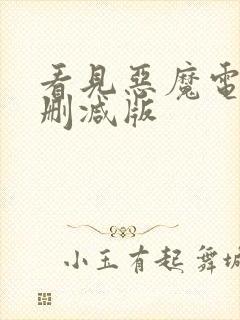 看見惡魔電
刪減版
小玉有起舞